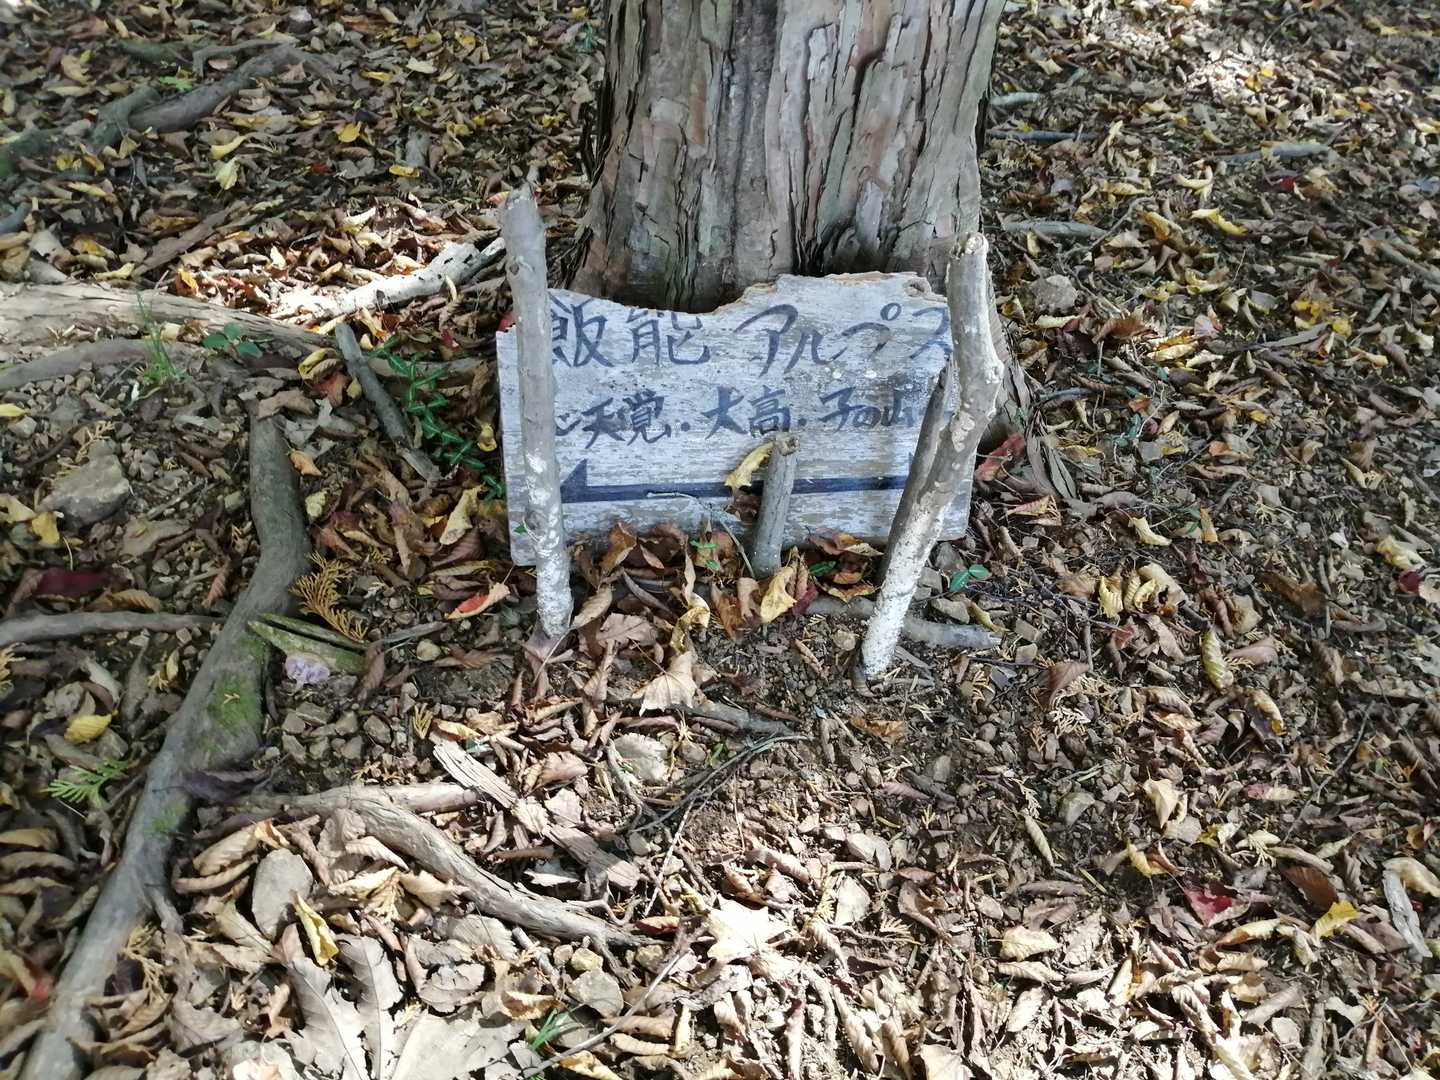 飯能アルプス
天覚・大高・子の山